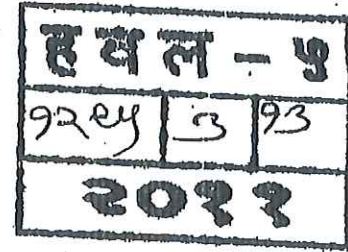 हवल - ५
१२९५ ३ १३
२०११